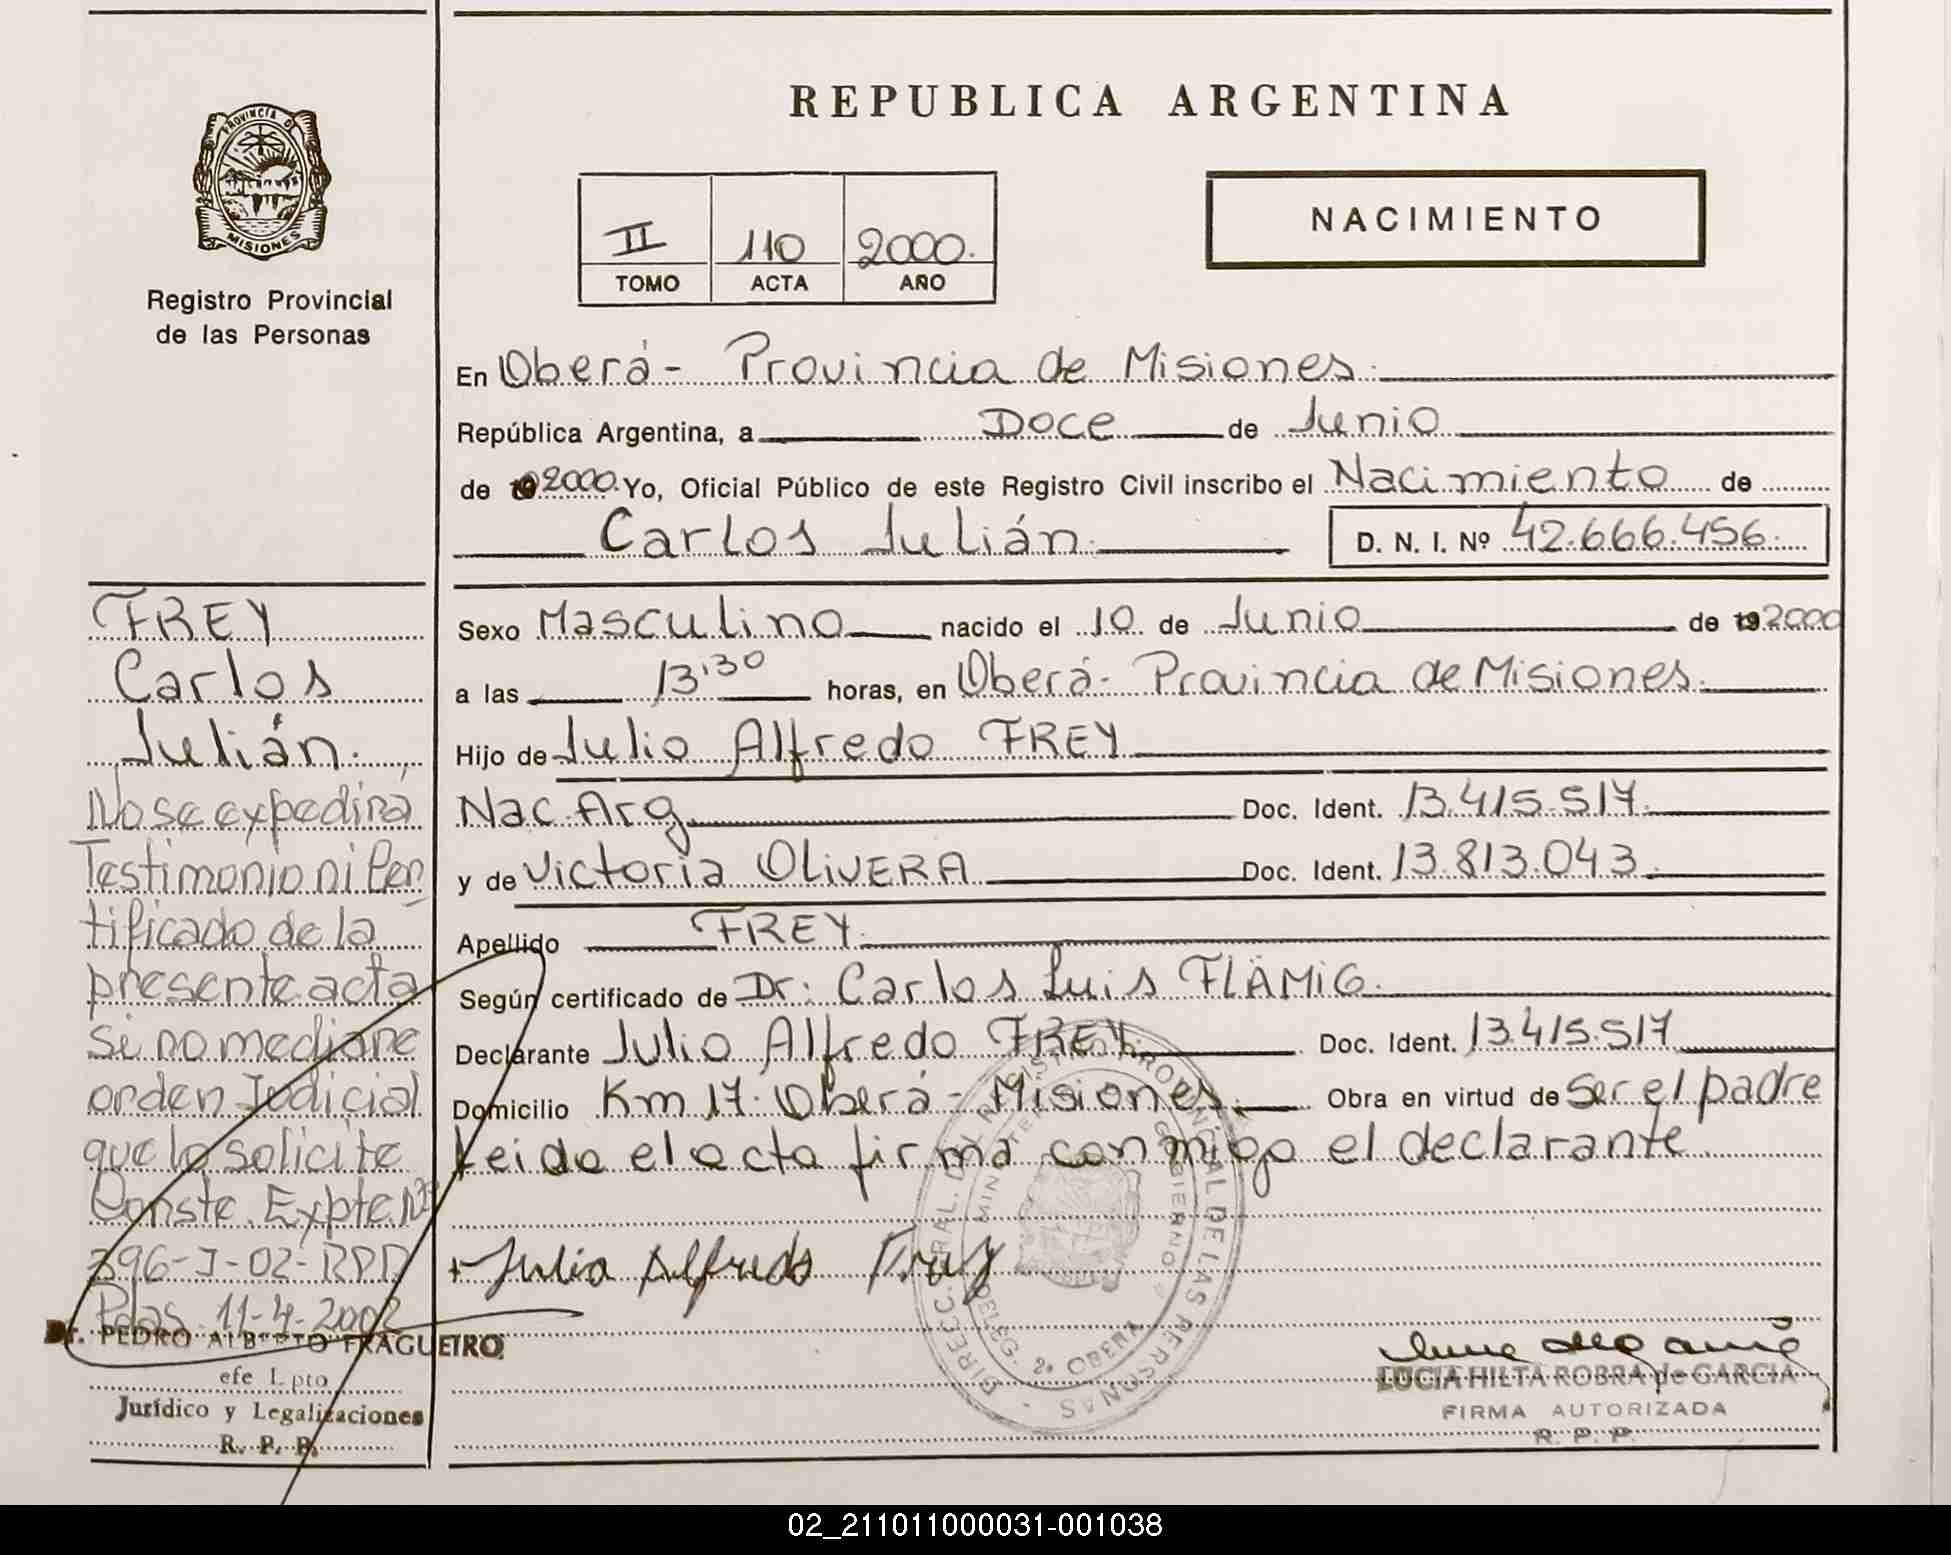 PROVINCIA D
MISIONES
Registro Provincial
de las Personas
REPUBLICA ARGENTINA
II 110 2000.
TOMO ACTA AÑO
NACIMIENTO
En Oberá - Provincia de Misiones.
República Argentina, a Doce de Junio
de 2000. Yo, Oficial Público de este Registro Civil inscribo el Nacimiento de
Carlos Julián.
D. N. I. Nº 42.666.456.
Sexo Masculino nacido el 10 de Junio de 192000
a las 13:30 horas, en Oberá - Provincia de Misiones.
Hijo de Julio Alfredo FREY
Nac. Arg. Doc. Ident. 13.415.517.
y de Victoria OLIVERA Doc. Ident. 13.813.043.
Apellido FREY.
Según certificado de Dr: Carlos Luis FLÄMIG.
Declarante Julio Alfredo FREY. Doc. Ident. 13.415.517
Domicilio Km 17. Oberá - Misiones. Obra en virtud de Ser el padre
Leida el acta firma conmigo el declarante
Julio Alfredo Frey
DIRECC. GRAL. DEL REGISTRO PROVINCIAL DE LAS PERSONAS
DELEG. 2ª OBERA
LUCIA HILTA ROBRA de GARCIA
FIRMA AUTORIZADA
R. P. P.
FREY
Carlos
Julián.
No se expedirá
Testimonio ni Cer
tificado de la
presente acta
si no mediare
orden Judicial
que lo solicite
Conste. Expte Nº
396-J-02-RPP
Pdas. 11-4-2002
Dr. PEDRO ALBERTO FRAGUEIRO
efe Dpto
Jurídico y Legalizaciones
R. P. P.
02_211011000031-001038